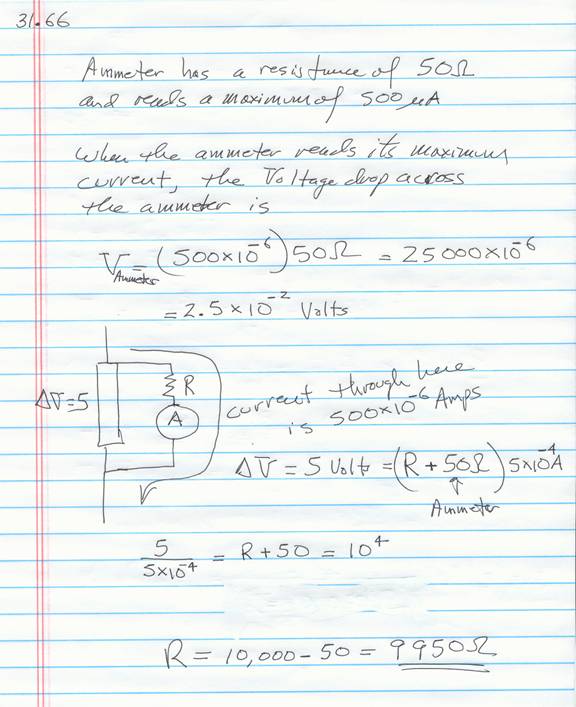 31.66
Ammeter has a resistance of 50Ω
and reads a maximum of 500 μA
When the ammeter reads its maximum
current, the Voltage drop across
the ammeter is
V_Ammeter = (500×10⁻⁶) 50Ω = 25000×10⁻⁶
= 2.5×10⁻² Volts
R
ΔV=5
A
current through here
is 500×10⁻⁶ Amps
V
ΔV = 5 Volts = (R + 50Ω) 5×10⁻⁴A
↑
Ammeter
5/5×10⁻⁴ = R+50 = 10⁴
R = 10,000 − 50 = 9950Ω